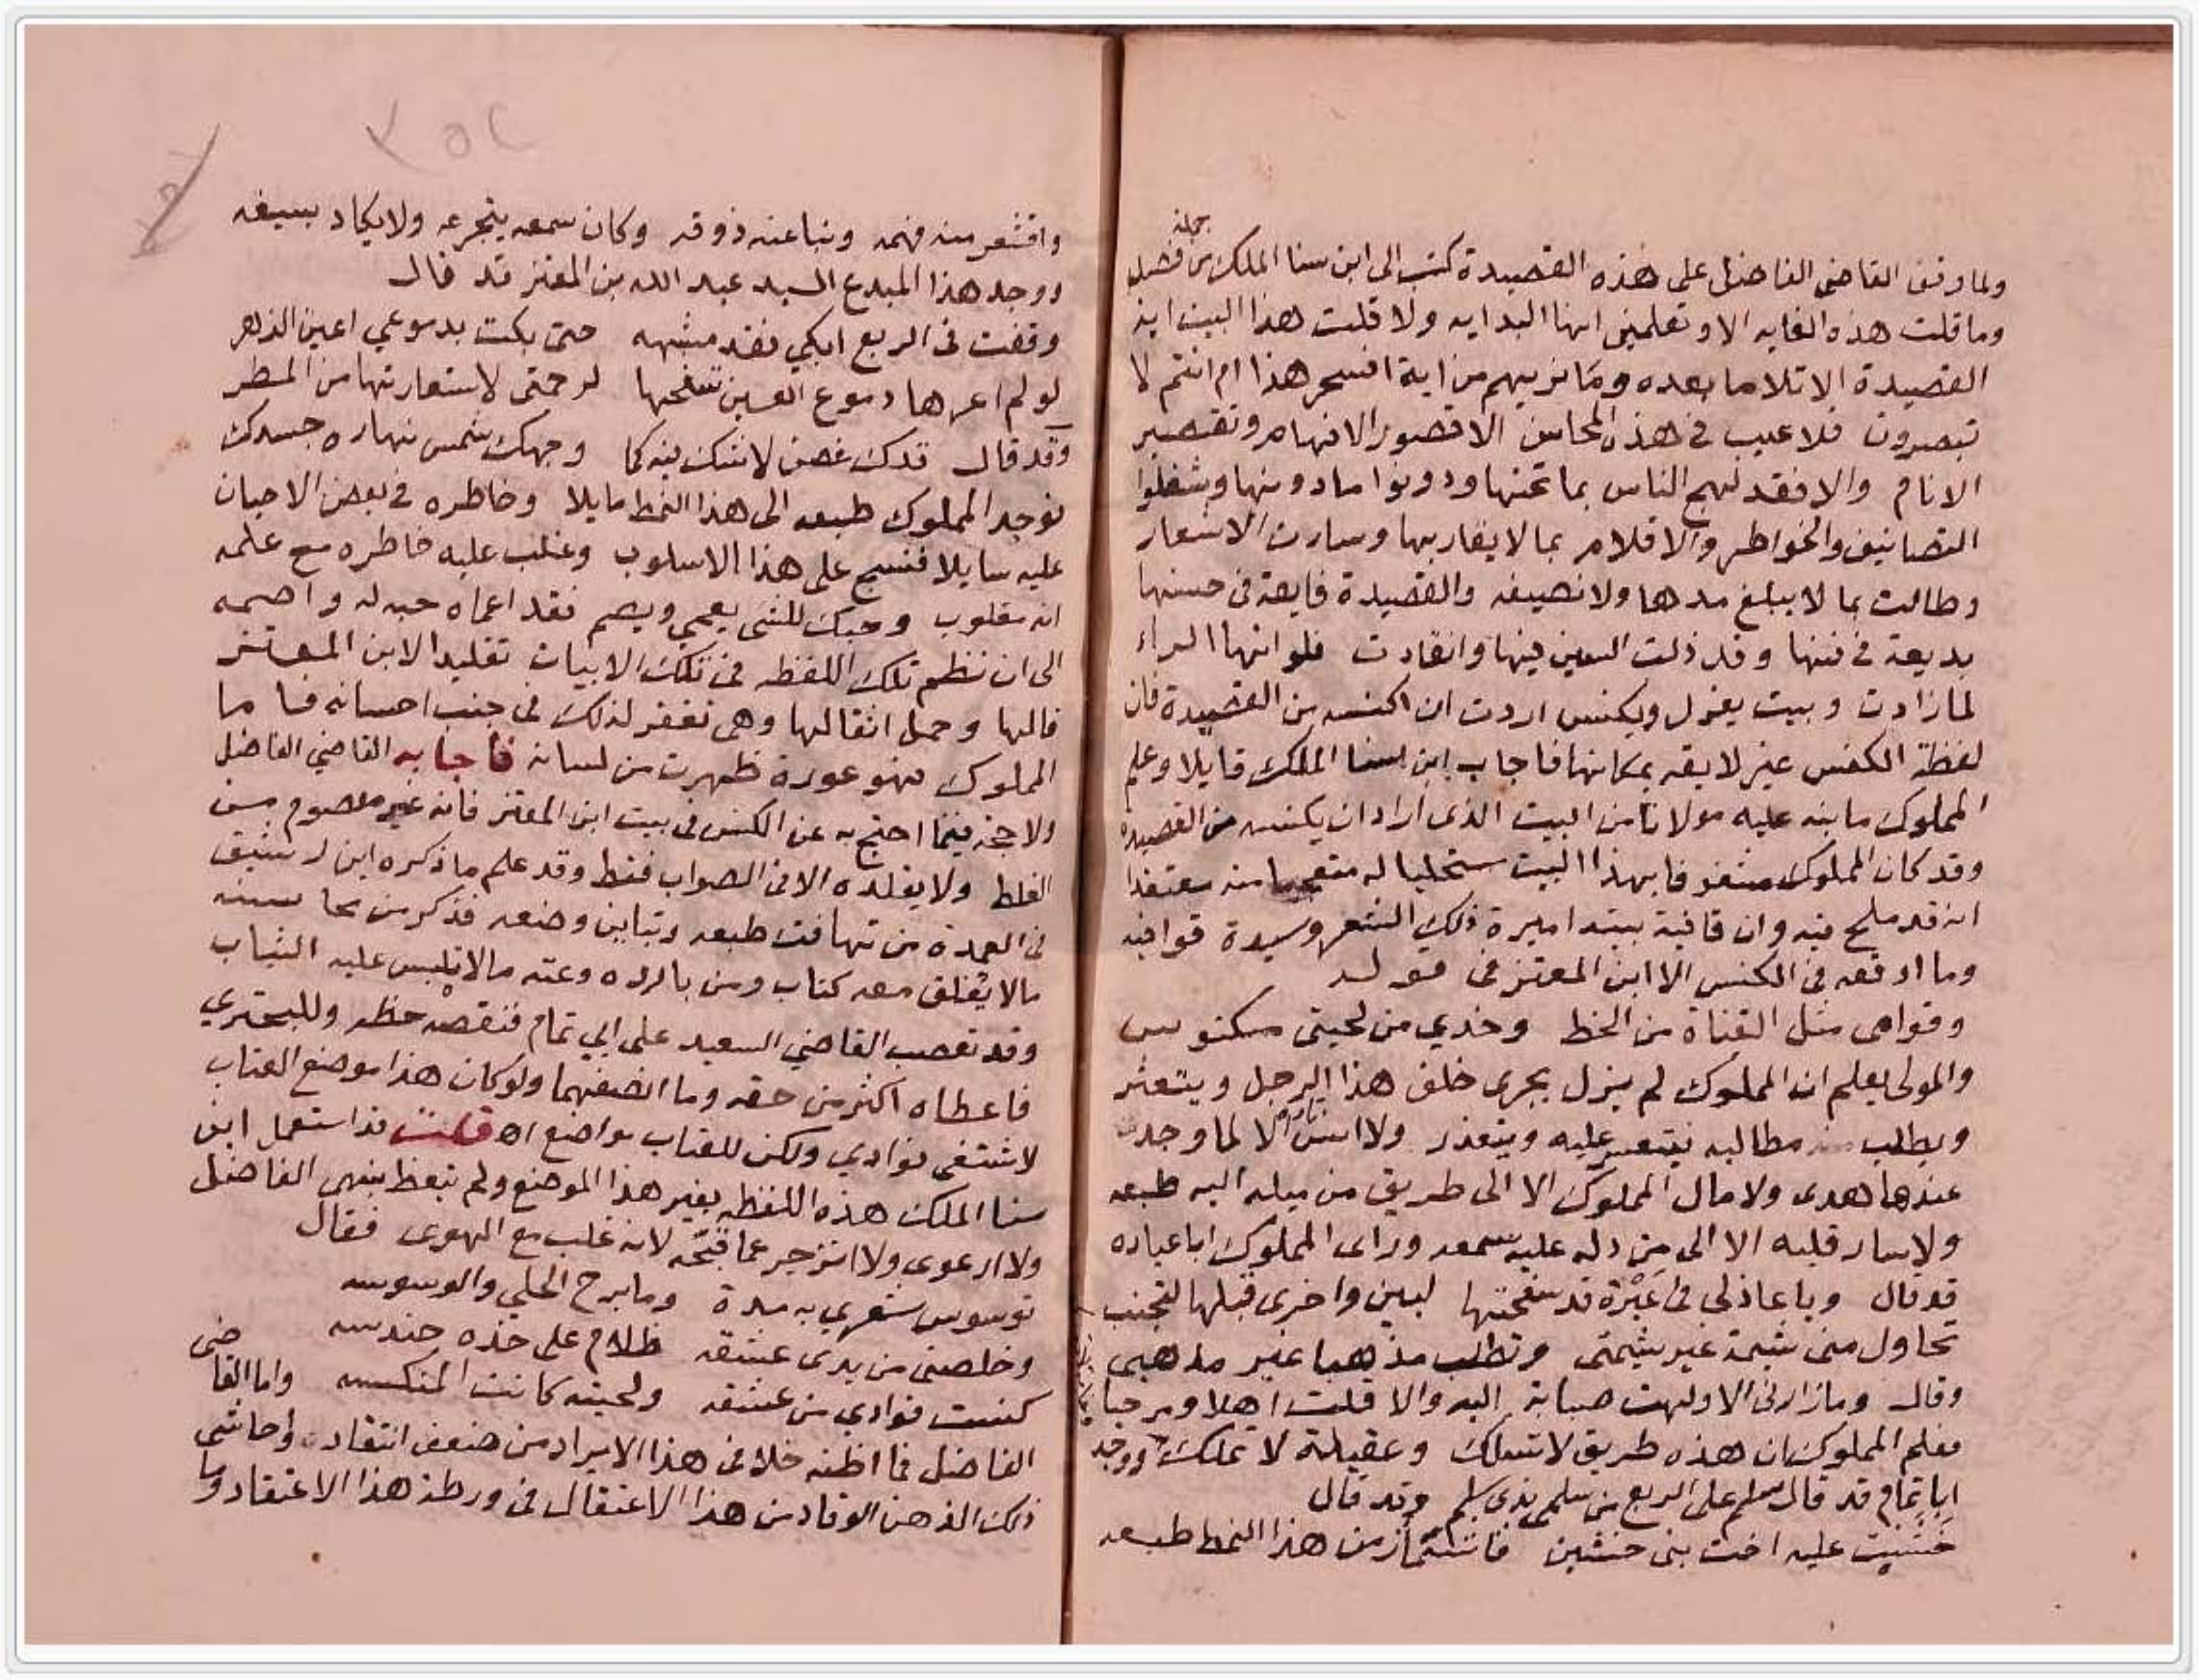 جملة
ولما وقف القاضي الفاضل على هذه القصيدة كتب الى ابن سنا الملك من فصل
وما قلت هذه الغايه الا وتعلمني انها البدايه ولا قلت هذا البيت اية
القصيدة الا تلا ما بعده وما نريهم من اية افسحر هذا ام انتم لا
تبصرون فلا عيب في هذه المحاسن الا قصور الافهام وتقصير
الانام والا فقد لهج الناس بما تحتها ودونوا ما دونها وشغلوا
التصانيف والخواطر والاقلام بما لا يقاربها وسارت الاشعار
وطالت بما لا يبلغ مدها ولا نصيفه والقصيدة فايقة في حسنها
بديعة في فنها وقد ذلت السين فيها وانقادت فلو انها الراء
لما زادت وبيت يغزل ويكنس اردت ان اكنسه من القصيدة فان
لفظة الكنس غير لايقه بمكانها فاجاب ابن سنا الملك قايلا وعلم
المملوك ما نبه عليه مولانا من البيت الذى اراد ان يكنسه من القصيدة
وقد كان المملوك مشغوفا بهذا البيت مستحليا له متعجبا منه معتقدا
انه قد ملح فيه وان قافية بيتد اميرة ذلك الشعر وسيدة قوافيه
وما اوقعه في الكنس الا ابن المعتز في قوله
وقوامى مثل القناة من الخط وخدي من لحيتي مكنوس
والمولى يعلم ان المملوك لم يزل يجرى خلف هذا الرجل ويتعثر
ويطلب مطالبه فيتعسر عليه ويتعذر ولا انس ناره الا لما وجد
عندها هدى ولا مال المملوك الا الى طريق من ميله اليه طبعه
ولا سار قلبه الا الى من دله عليه سمعه وراى المملوك ابا عباده
قد قال ويا عاذلي في عَبْرة قد سفحتها لبين واخرى قبلها لتجنب
تحاول منى شيمة غير شيمتي وتطلب مذهبا غير مذهبى
وقال وما زارنى الا ولهت صبابة اليه والا قلت اهلا ومرحبا
فعلم المملوك ان هذه طريق لا تسلك وعقيلة لا تملك ووجد
ابا تمام قد قال سلم على الربع من سلمى بذى سلم وقد قال
خشنت عليه اخت بنى خشين فاشمأز من هذا النمط طبعه
واقشعر منه فهمه ونبا عنه ذوقه وكان سمعه يتجرعه ولا يكاد يسيغه
ووجد هذا المبدع السيد عبد الله بن المعتز قد قال
وقفت فى الربع ابكي فقد مشبهه حتى بكت بدموعي اعين الزهر
لو لم اعرها دموع العين تسفحها لرحمتى لاستعارتها من المطر
وقد قال قدك غصن لا شك فيه كما وجهك شمس نهاره جسدك
فوجد المملوك طبعه الى هذا النمط مايلا وخاطره في بعض الاحيان
عليه سايلا فنسج على هذا الاسلوب وغلب عليه خاطره مع علمه
انه مغلوب وحبك للشى يعمي ويصم فقد اعماه حبه له واصمه
الى ان نظم تلك اللفظه فى تلك الابيات تقليدا لابن المعتز
قالها وحمل اثقالها وهى تغفر لذلك فى جنب احسانه فاما
المملوك فهو عورة ظهرت من لسانه فاجابه القاضي الفاضل
ولا حجة فيما احتج به عن الكنس فى بيت ابن المعتز فانه غير معصوم من
الغلط ولا يقلده الا فى الصواب فقط وقد علم ما ذكره ابن رشيق
فى العمدة من تهافت طبعه وتباين وضعه فذكر من محاسنه
ما لا يعلق معه كتاب ومن بارده وغثه ما لا تلبس عليه الثياب
وقد تعصب القاضي السعيد على ابي تمام فنقصه حظه وللبحتري
فاعطاه اكثر من حقه وما انصفهما ولو كان هذا موضع العتاب
لاشتفى فوادي ولكن للعتاب مواضع اه قلت قد استعمل ابن
سنا الملك هذه اللفظه بغير هذا الموضع ولم تعظ بنهى الفاضل
ولا ارعوى ولا انزجر عما قبّحه لانه غلب مع الهوى فقال
توسوس شعري به مدة وما برح الحلي والوسوسه
وخلصنى من يدى عشقه ظلام على خده حندسه
كنست فوادي من عشقه ولحيته كانت المكنسه واما القاضى
الفاضل فما اظنه خلا فى هذا الايراد من ضعف انتقاد واحاشى
ذلك الذهن الوقاد من هذا الاعتقال فى ورطة هذا الاعتقاد وما